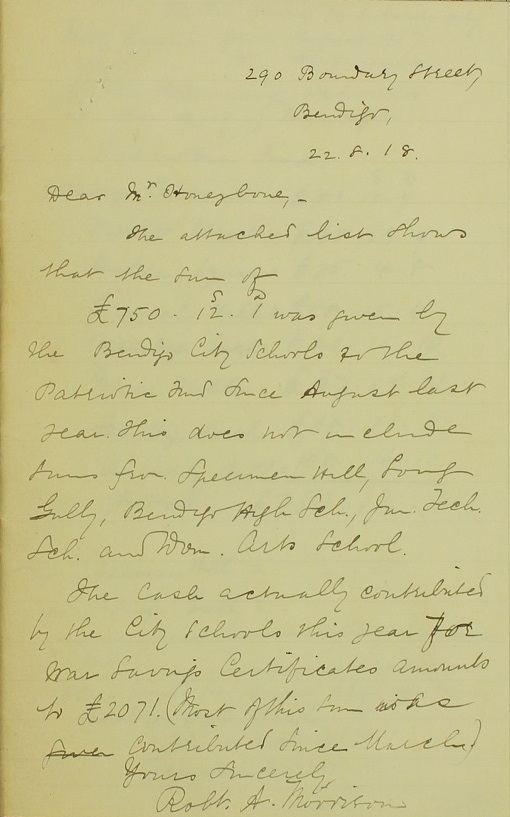 290 Boundary Street,
Bendigo,
22. 8. 18.
Dear Mr. Honeybone, -
The attached list shows
that the sum of
£750 . 12s . 1d was given by
the Bendigo City Schools to the
Patriotic Fund since August last
year. This does not include
sums from Specimen Hill, Long
Gully, Bendigo High Sch., Jun. Tech.
Sch. and Dom. Arts School.
The cash actually contributed
by the City Schools this year for
War Savings Certificates amounts
to £2071. (Most of this sum was
given contributed since March.)
Yours Sincerely,
Robt. A. Morrison